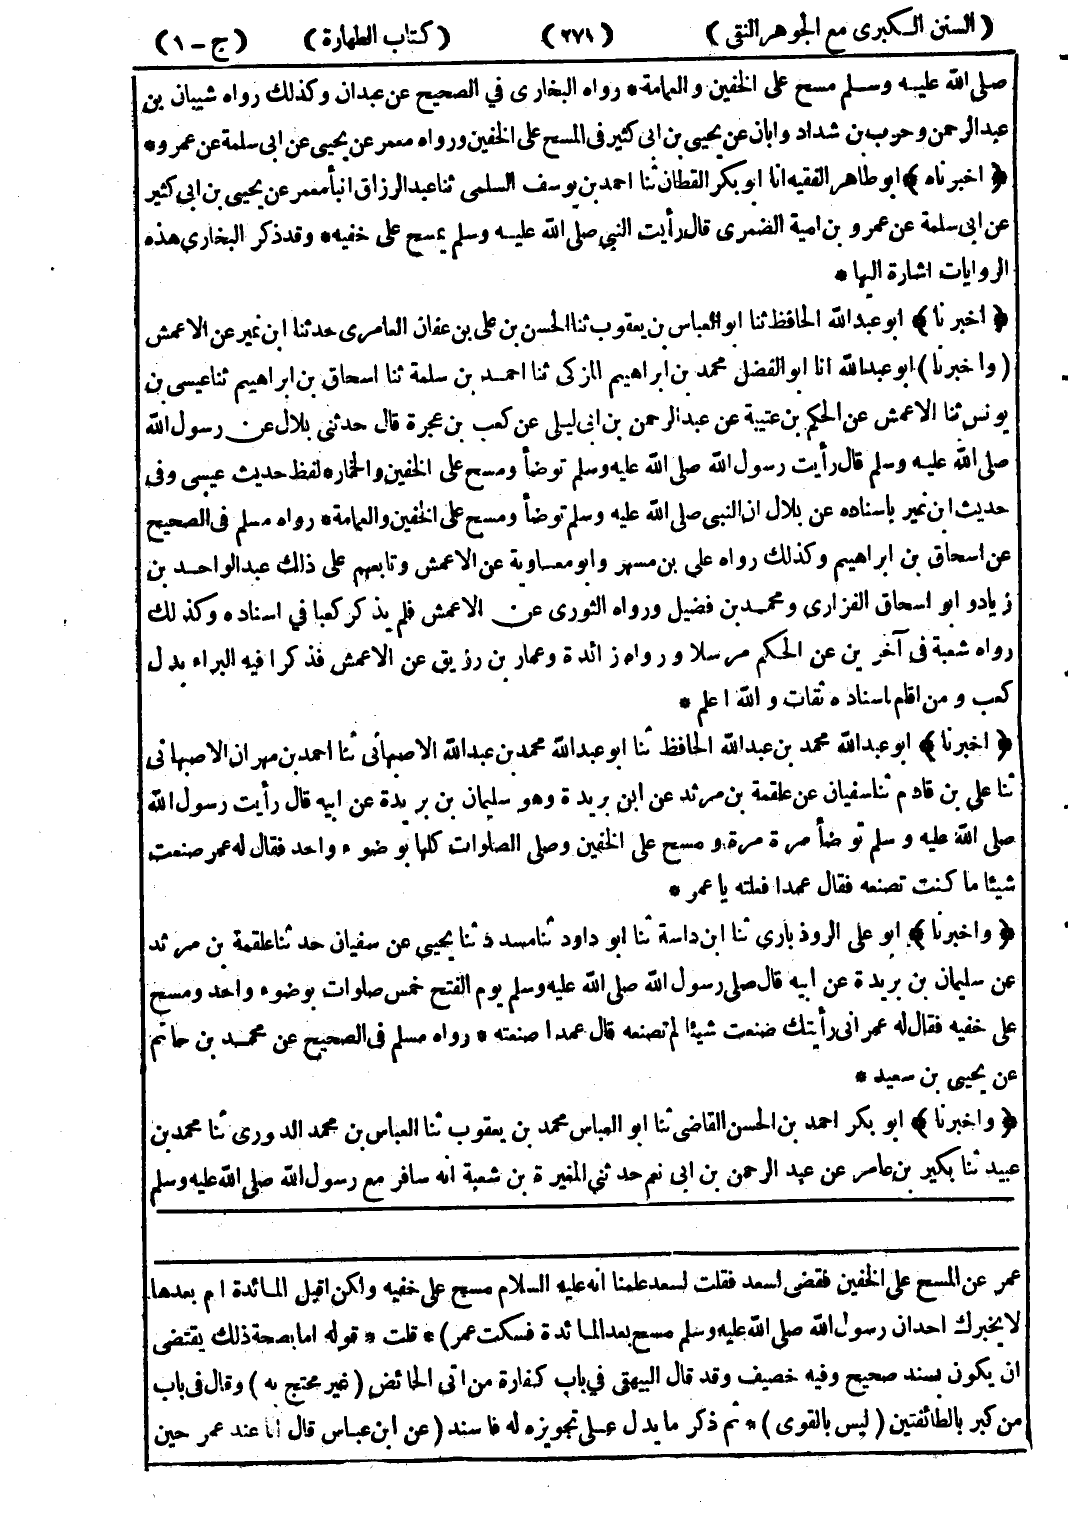 ( السنن الكبرى مع الجوهر النقى ) ( ٢٧١ ) ( كتاب الطهارة ) ( ج - ١ )
صلى الله عليه وسلم مسح على الخفين والعمامة * رواه البخارى في الصحيح عن عبدان وكذلك رواه شيبان بن
عبد الرحمن وحرب بن شداد وابان عن يحيى بن ابى كثير فى المسح على الخفين ورواه معمر عن يحيى عن ابى سلمة عن عمرو *
﴿ اخبرناه ﴾ ابو طاهر الفقيه انا ابو بكر القطان ثنا احمد بن يوسف السلمى ثنا عبد الرزاق انبأ معمر عن يحيى بن ابى كثير
عن ابى سلمة عن عمرو بن امية الضمرى قال رأيت النبي صلى الله عليه وسلم يمسح على خفيه * وقد ذكر البخارى هذه
الروايات اشارة اليها *
﴿ اخبرنا ﴾ ابو عبد الله الحافظ ثنا ابو العباس بن يعقوب ثنا الحسن بن على بن عفان العامرى حدثنا ابن نمير عن الاعمش
( واخبرنا ) ابو عبد الله انا ابو الفضل محمد بن ابراهيم المزكى ثنا احمد بن سلمة ثنا اسحاق بن ابراهيم ثنا عيسى بن
يونس ثنا الاعمش عن الحكم بن عتيبة عن عبد الرحمن بن ابى ليلى عن كعب بن عجرة قال حدثنى بلال عن رسول الله
صلى الله عليه وسلم قال رأيت رسول الله صلى الله عليه وسلم توضأ ومسح على الخفين والخمار * لفظ حديث عيسى وفى
حديث ابن نمير باسناده عن بلال ان النبى صلى الله عليه وسلم توضأ ومسح على الخفين والعمامة * رواه مسلم فى الصحيح
عن اسحاق بن ابراهيم وكذلك رواه على بن مسهر وابو معاوية عن الاعمش وتابعهم على ذلك عبد الواحد بن
زياد و ابو اسحاق الفزارى ومحمد بن فضيل ورواه الثورى عن الاعمش فلم يذكر كعبا فى اسناده وكذلك
رواه شعبة فى آخرين عن الحكم مرسلا ورواه زائدة وعمار بن رزيق عن الاعمش فذكرا فيه البراء بدل
كعب ومن اقام اسناده ثقات والله اعلم *
﴿ اخبرنا ﴾ ابو عبد الله محمد بن عبد الله الحافظ ثنا ابو عبد الله محمد بن عبد الله الاصبهانى ثنا احمد بن مهران الاصبهانى
ثنا على بن قادم ثنا سفيان عن علقمة بن مرثد عن ابن بريدة وهو سليمان بن بريدة عن ابيه قال رأيت رسول الله
صلى الله عليه وسلم توضأ مرة مرة ومسح على الخفين وصلى الصلوات كلها بوضوء واحد فقال له عمر صنعت
شيئا ما كنت تصنعه فقال عمدا فعلته يا عمر *
﴿ واخبرنا ﴾ ابو على الروذبارى ثنا ابن داسة ثنا ابو داود ثنا مسدد ثنا يحيى عن سفيان حدثنا علقمة بن مرثد
عن سليمان بن بريدة عن ابيه قال صلى رسول الله صلى الله عليه وسلم يوم الفتح خمس صلوات بوضوء واحد ومسح
على خفيه فقال له عمر انى رأيتك صنعت شيئا لم تصنعه قال عمدا صنعته * رواه مسلم فى الصحيح عن محمد بن حاتم
عن يحيى بن سعيد *
﴿ واخبرنا ﴾ ابو بكر احمد بن الحسن القاضى ثنا ابو العباس محمد بن يعقوب ثنا العباس بن محمد الدورى ثنا محمد بن
عبيد ثنا بكير بن عامر عن عبد الرحمن بن ابى نعم حدثنى المغيرة بن شعبة انه سافر مع رسول الله صلى الله عليه وسلم
عمر عن المسح على الخفين فقضى لسعد فقلت لسعد علمنا انه عليه السلام مسح على خفيه ولكن اقبل المائدة ام بعدها
لا يخبرك احد ان رسول الله صلى الله عليه وسلم مسح بعد المائدة فسكت عمر ) * قلت * قوله اما بصحة ذلك يقتضى
ان يكون بسند صحيح وفيه خصيف وقد قال البيهقى في باب كفارة من اتى الحائض ( غير محتج به ) وقال فى باب
من كبر بالطائفتين ( ليس بالقوى ) * ثم ذكر ما يدل على تجويزه له فاسند ( عن ابن عباس قال انا عند عمر حين